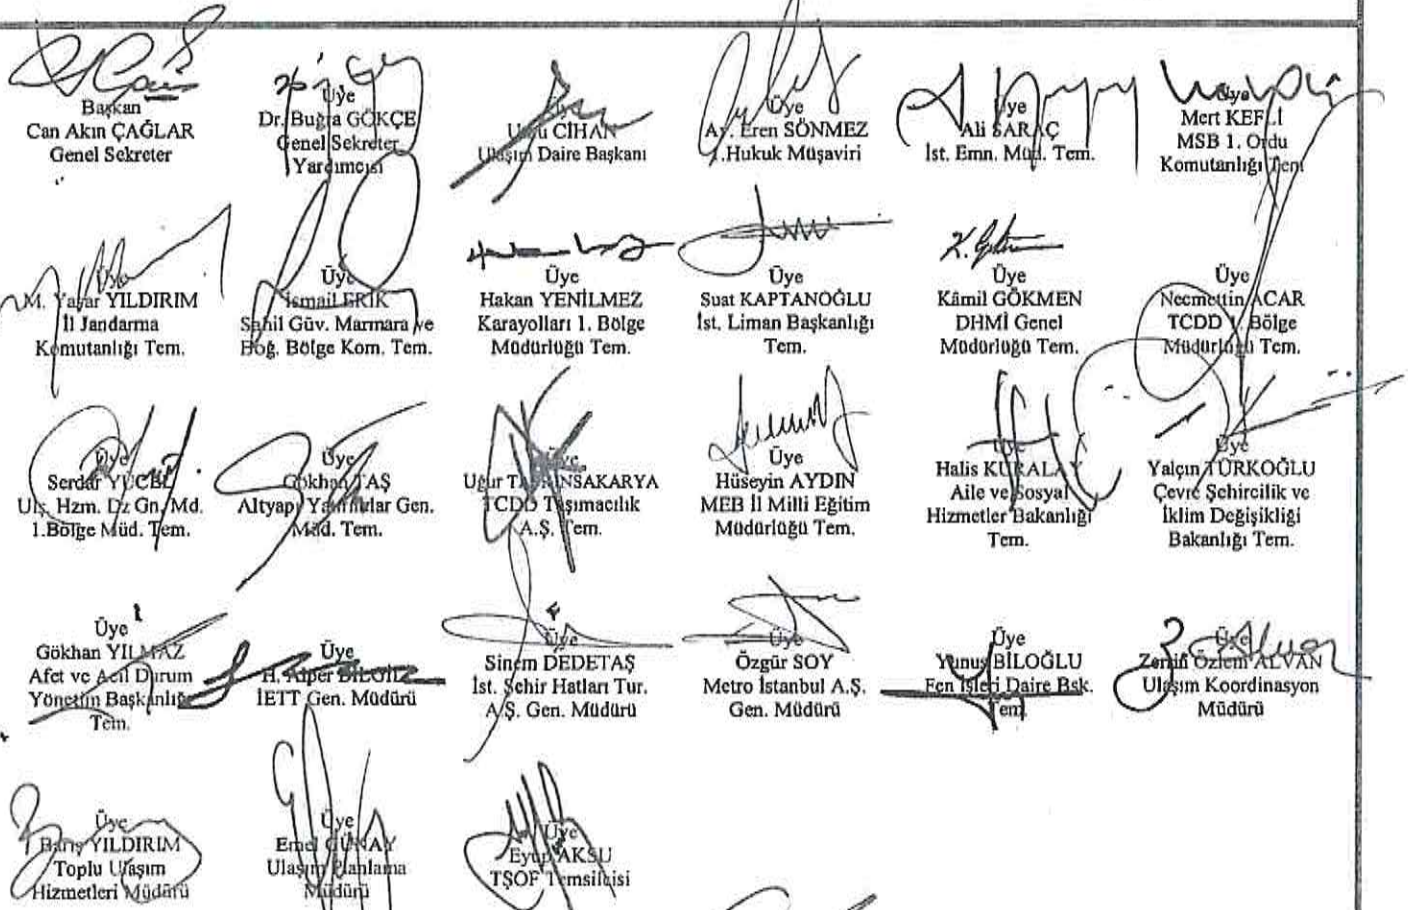 Başkan
Can Akın ÇAĞLAR
Genel Sekreter
Üye
Dr. Buğra GÖKÇE
Genel Sekreter
Yardımcısı
Utku CİHAN
Ulaşım Daire Başkanı
Üye
Av. Eren SÖNMEZ
1.Hukuk Müşaviri
Üye
Ali SARAÇ
İst. Emn. Müd. Tem.
Üye
Mert KEFLİ
MSB 1. Ordu
Komutanlığı Tem
Üye
M. Yaşar YILDIRIM
İl Jandarma
Komutanlığı Tem.
Üye
İsmail ERİK
Sahil Güv. Marmara ve
Boğ. Bölge Kom. Tem.
Üye
Hakan YENİLMEZ
Karayolları 1. Bölge
Müdürlüğü Tem.
Üye
Suat KAPTANOĞLU
İst. Liman Başkanlığı
Tem.
Üye
Kâmil GÖKMEN
DHMİ Genel
Müdürlüğü Tem.
Üye
Necmettin ACAR
TCDD 1. Bölge
Müdürlüğü Tem.
Üye
Serdar YÜCEL
Ulş. Hzm. Dz Gn. Md.
1.Bölge Müd. Tem.
Üye
Gökhan TAŞ
Altyapı Yatırımlar Gen.
Müd. Tem.
Üye
Uğur
TCDD Taşımacılık
A.Ş. Tem.
Üye
Hüseyin AYDIN
MEB İl Milli Eğitim
Müdürlüğü Tem.
Üye
Halis KURALAY
Aile ve Sosyal
Hizmetler Bakanlığı
Tem.
Üye
Yalçın TÜRKOĞLU
Çevre Şehircilik ve
İklim Değişikliği
Bakanlığı Tem.
Üye
Gökhan YILMAZ
Afet ve Acil Durum
Yönetim Başkanlığı
Tem.
Üye
H. Alper BİLGİLİ
İETT Gen. Müdürü
Üye
Sinem DEDETAŞ
İst. Şehir Hatları Tur.
A.Ş. Gen. Müdürü
Üye
Özgür SOY
Metro İstanbul A.Ş.
Gen. Müdürü
Üye
Yunus BİLOĞLU
Fen İşleri Daire Bsk.
Tem.
Üye
Zerrin Özlem ALVAN
Ulaşım Koordinasyon
Müdürü
Üye
Barış YILDIRIM
Toplu Ulaşım
Hizmetleri Müdürü
Üye
Emel GÜNAY
Ulaşım Planlama
Müdürü
Üye
Eyüp AKSU
TŞOF Temsilcisi